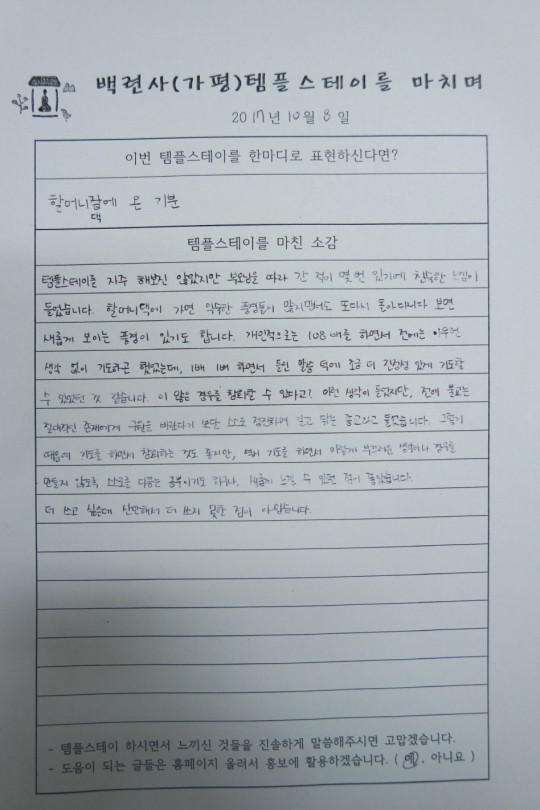 백련사(가평)템플스테이를 마치며
2017년 10월 8일
이번 템플스테이를 한마디로 표현하신다면?
할머니집에 온 기분
댁
템플스테이를 마친 소감
템플스테이를 자주 해보진 않았지만 부모님을 따라 간 적이 몇 번 있기에 친숙한 느낌이
들었습니다. 할머니댁에 가면 익숙한 풍경들이 많지만서도 또다시 돌아다니다 보면
새롭게 보이는 풍경이 있기도 합니다. 개인적으로는 108배를 하면서 전에는 아무런
생각 없이 기도하곤 했었는데, 1배 1배 하면서 들린 말씀 덕에 조금 더 진정성 있게 기도할
수 있었던 것 같습니다. 이 많은 경우를 참회할 수 있다고? 이런 생각이 들었지만, 전에 불교는
절대적인 존재에게 구원을 바란다기 보단 스스로 정진하며 갈고 닦는 종교라고 들었습니다. 그렇기
때문에 기도를 하면서 참회하는 것도 좋지만, 역시 기도를 하면서 이렇게 부끄러운 경우를
만들지 않도록 스스로를 다듬는 공부이기도 하구나, 새롭게 느낄 수 있던 점이 좋았습니다.
더 쓰고 싶은데 산만해서 더 쓰지 못한 점이 아쉽습니다.
- 템플스테이 하시면서 느끼신 것들을 진솔하게 말씀해주시면 고맙겠습니다.
- 도움이 되는 글들은 홈페이지 올려서 홍보에 활용하겠습니다. ( 예, 아니요 )